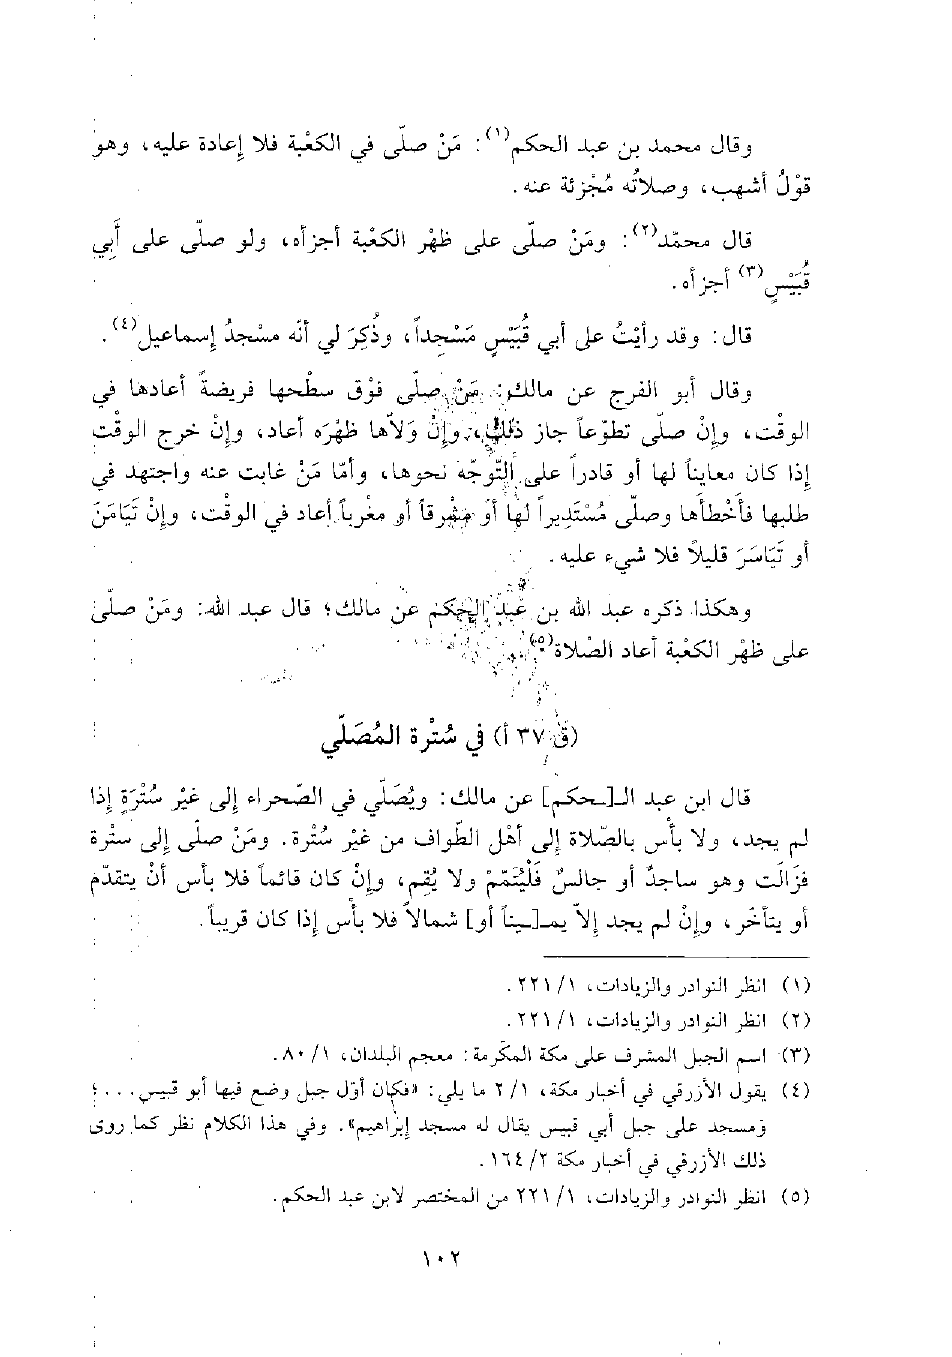 وقال محمد بن عبد الحكم(١): مَنْ صلّى في الكعْبة فلا إعادة عليه، وهو
قوْلُ أشهب، وصلاتُه مُجْزئة عنه.
قال محمّد(٢): ومَنْ صلّى على ظهْر الكعْبة أجزأه، ولو صلّى على أَبِي
قُبَيْسٍ(٣) أجزأه.
قال: وقد رأيْتُ على أبي قُبَيْسٍ مَسْجِداً، وذُكِرَ لي أنّه مسْجدُ إسماعيل(٤).
وقال أبو الفرج عن مالك: مَنْ صلّى فوْق سطْحها فريضةً أعادها في
الوقْت، وإنْ صلّى تطوّعاً جاز ذلك، وإنْ وَلاّها ظهْرَه أعاد، وإنْ خرج الوقْت
إذا كان معايناً لها أو قادراً على التّوجّه نحوها، وأمّا مَنْ غابت عنه واجتهد في
طلبها فأَخْطأَها وصلّى مُسْتَدِيراً لها أوْ مشْرقاً أو مغْرباً أعاد في الوقْت، وإنْ تَيَامَنَ
أو تَيَاسَرَ قليلاً فلا شيء عليه.
وهكذا ذكره عبد الله بن عبد الحكم عن مالك؛ قال عبد الله: ومَنْ صلّى
على ظهْر الكعْبة أعاد الصّلاة(٥).
(ق ٣٧ أ) في سُتْرة المُصَلّي
قال ابن عبد الـ[ـحكم] عن مالك: ويُصَلّي في الصّحراء إلى غيْر سُتْرَةٍ إذا
لم يجد، ولا بأْس بالصّلاة إلى أهْل الطّواف من غيْر سُتْرة. ومَنْ صلّى إلى ستْرة
فزَالَت وهو ساجدٌ أو جالسٌ فَلْيُتمّمْ ولا يُقِم، وإنْ كان قائماً فلا بأس أنْ يتقدّم
أو يتأخّر، وإنْ لم يجد إلاّ يمـ[ـيناً أو] شمالاً فلا بأْس إذا كان قريباً.
(١) انظر النوادر والزيادات، ١/ ٢٢١.
(٢) انظر النوادر والزيادات، ١/ ٢٢١.
(٣) اسم الجبل المشرف على مكة المكرمة: معجم البلدان، ١/ ٨٠.
(٤) يقول الأزرقي في أخبار مكة، ١/ ٢ ما يلي: «فكان أوّل جبل وضع فيها أبو قبيس...؛
ومسجد على جبل أبي قبيس يقال له مسجد إبراهيم». وفي هذا الكلام نظر كما روى
ذلك الأزرقي في أخبار مكة ٢/ ١٦٤.
(٥) انظر النوادر والزيادات، ١/ ٢٢١ من المختصر لابن عبد الحكم.
١٠٢